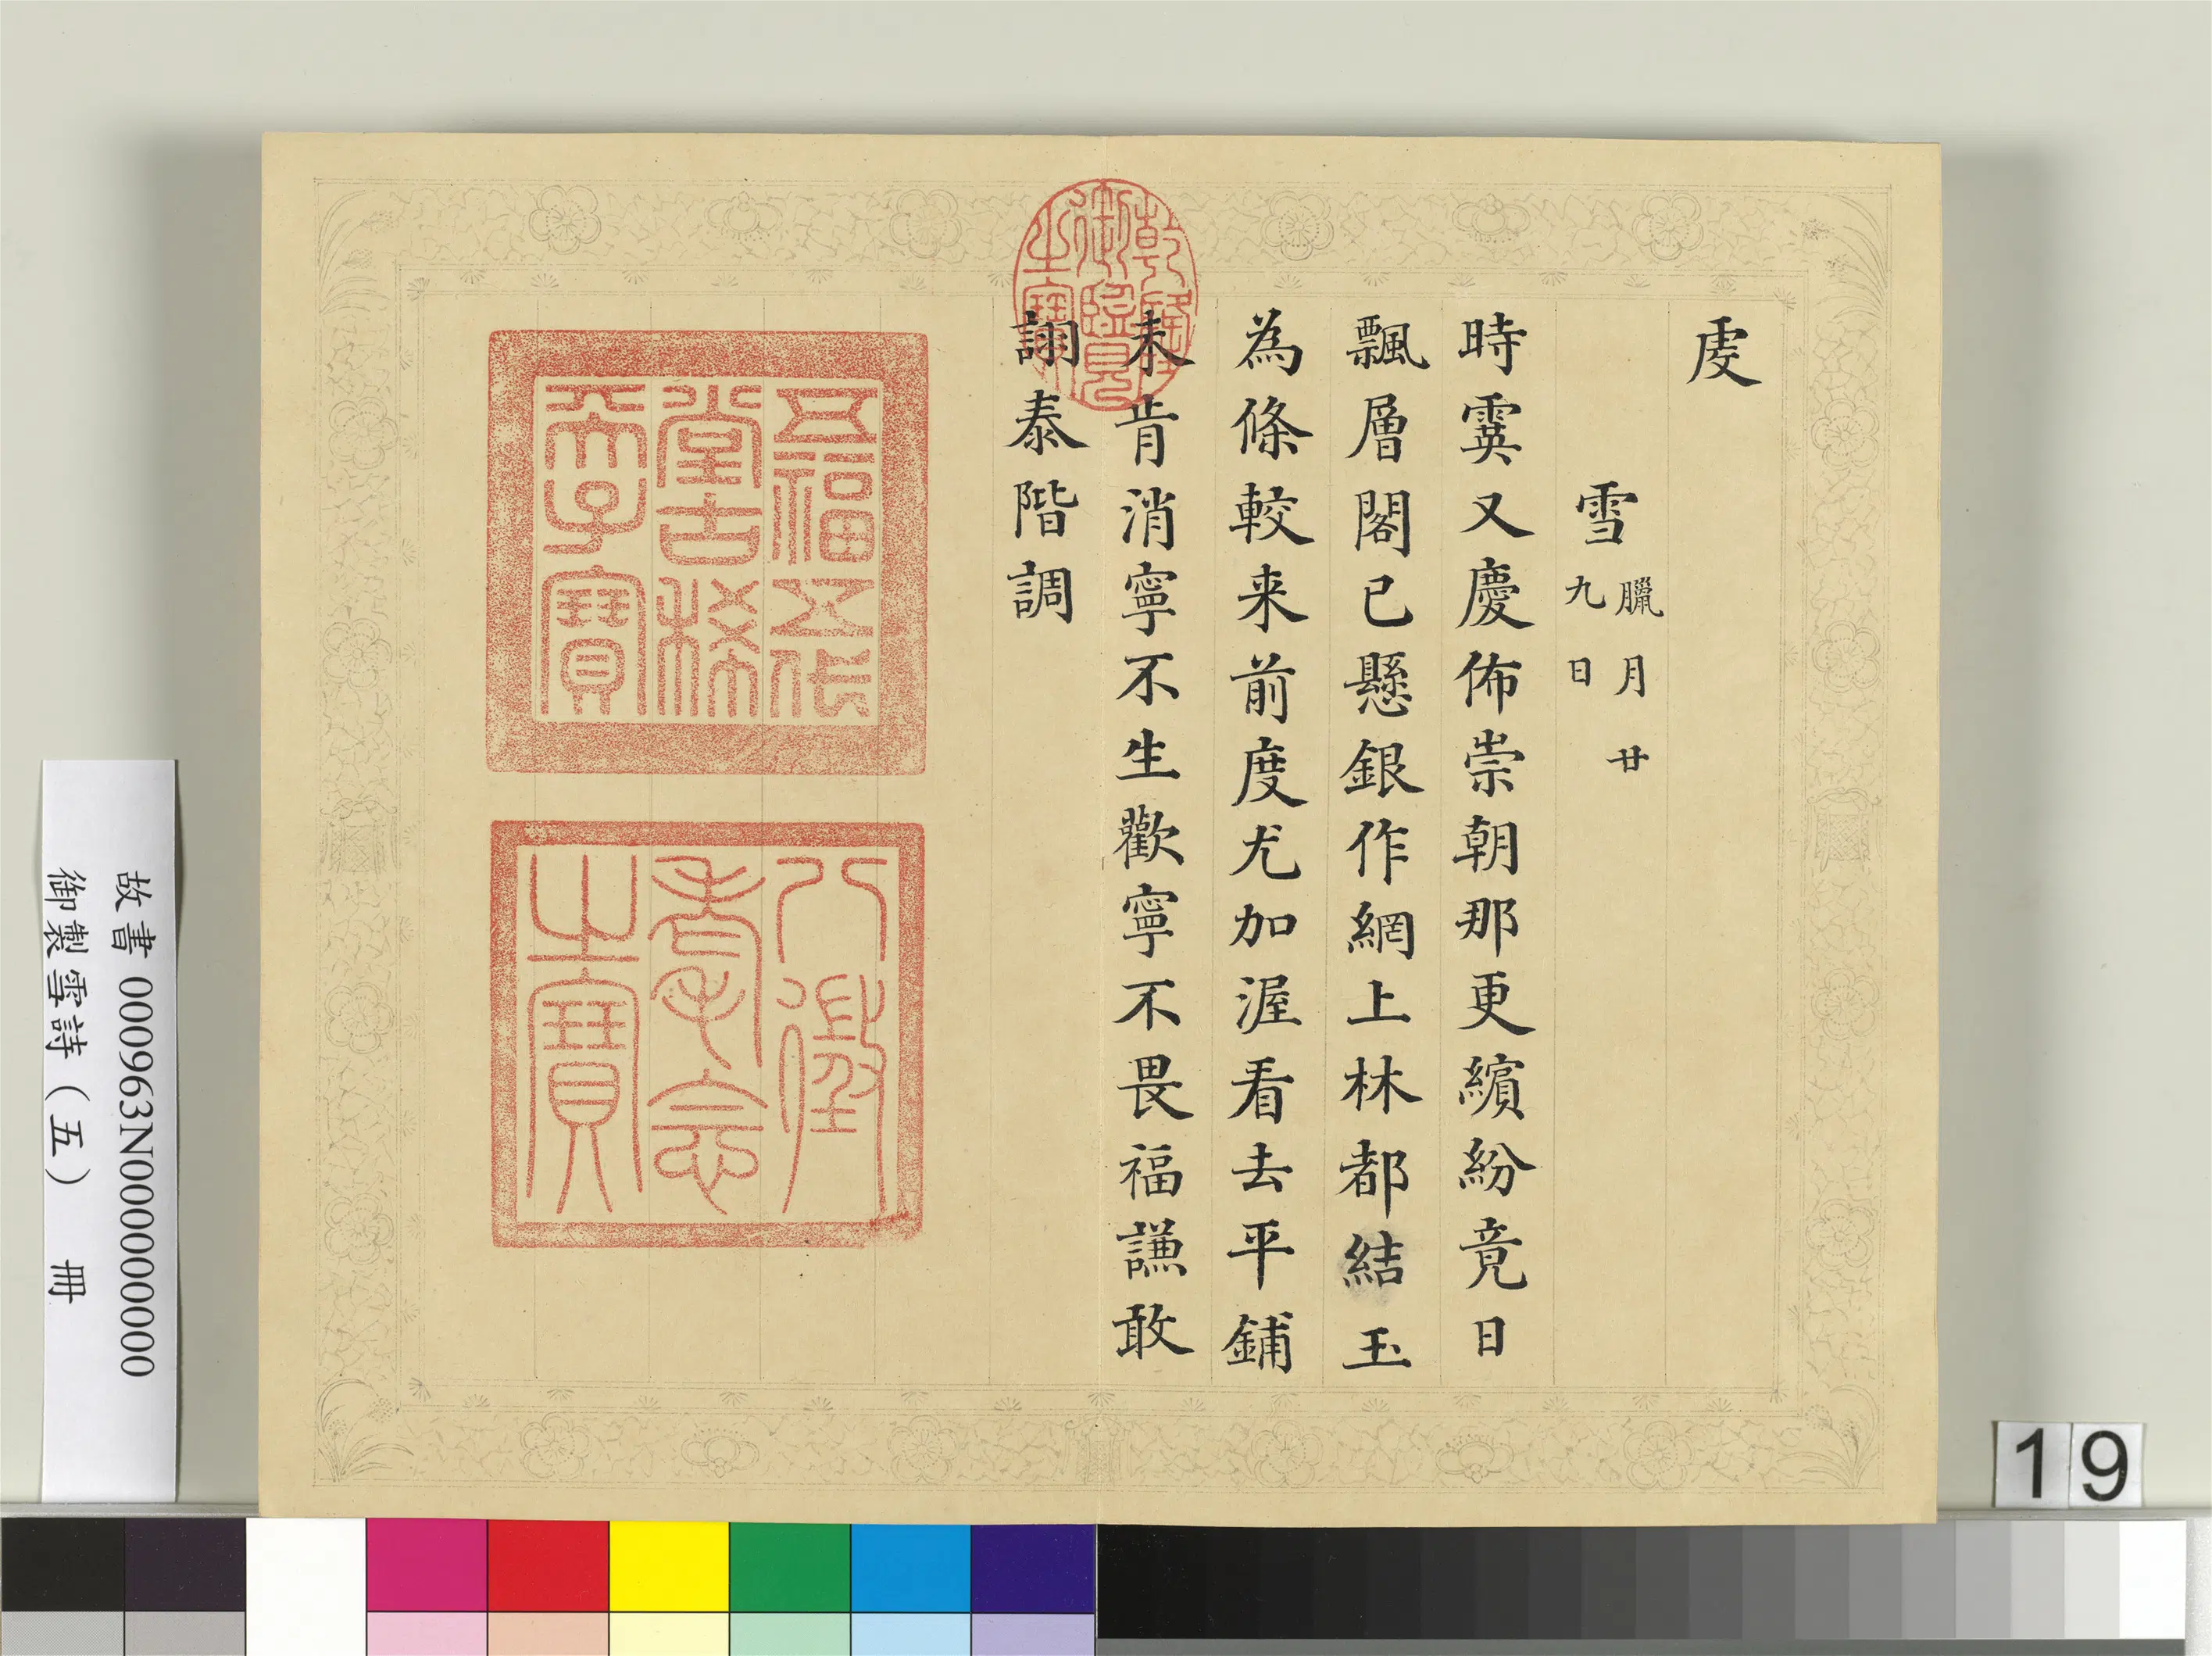 虔
雪 臘月廿
九日
時霙又慶佈崇朝那更繽紛竟日
飄層閣已懸銀作網上林都結玉
為條較来前度尤加渥看去平鋪
未肯消寧不生歡寧不畏福謙敢
詡泰階調
乾隆御覽之寶
五福五代堂古稀天子寶
八徵耄念之寶
故書 000963N000000000
御製雪詩（五） 冊
19